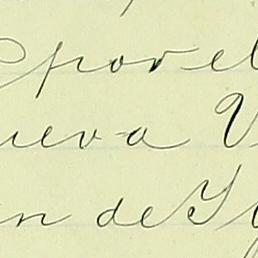 por el
ueva V
n de Y